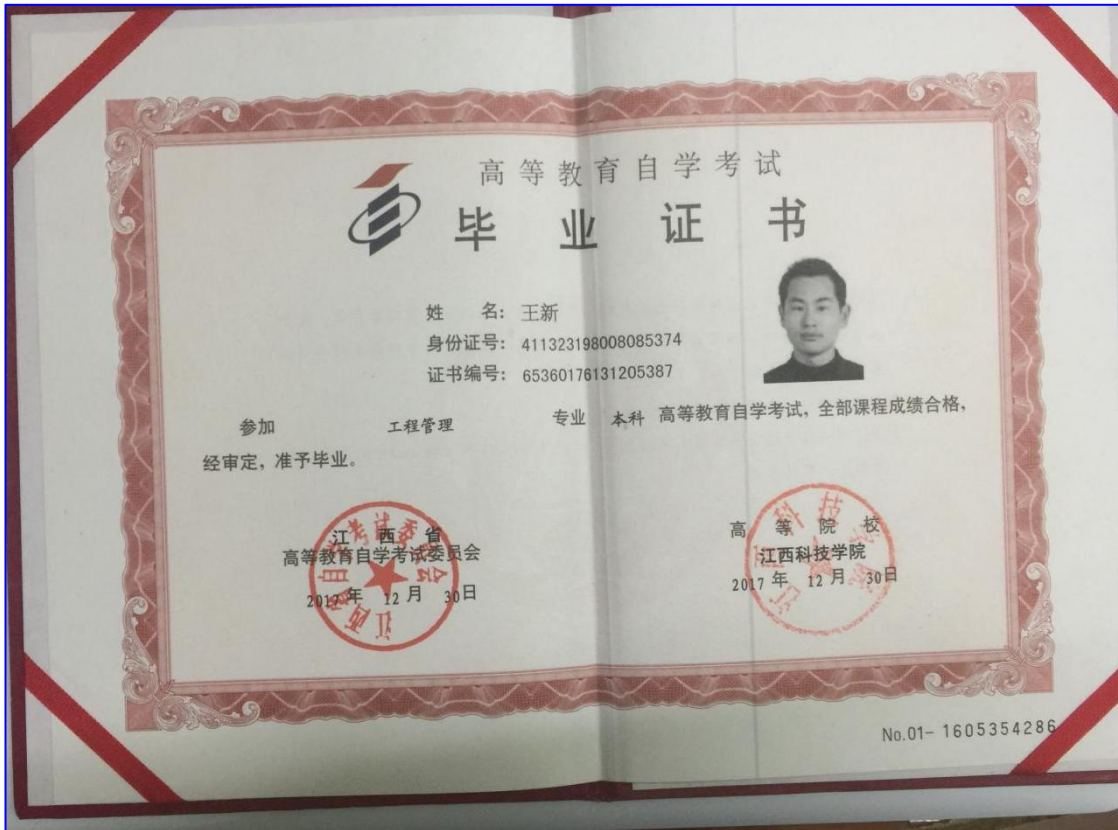 高等教育自学考试
毕业证书
姓 名: 王新
身份证号: 411323198008085374
证书编号: 65360176131205387
参加 工程管理 专业 本科 高等教育自学考试, 全部课程成绩合格,
经审定, 准予毕业。
江西省
高等教育自学考试委员会
2017年 12月 30日
高等院校
江西科技学院
2017年 12月 30日
No.01- 1605354286